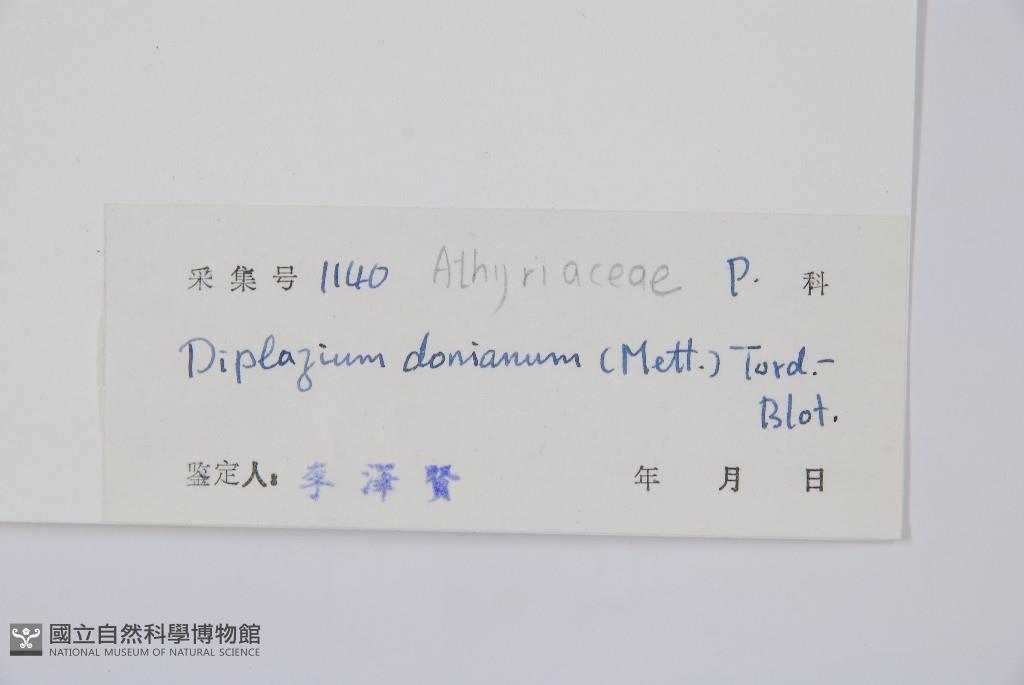 采集号 1140 Athyriaceae P. 科
Diplazium donianum (Mett.) Tard.-
Blot.
鉴定人: 李泽贤 年 月 日
國立自然科學博物館
NATIONAL MUSEUM OF NATURAL SCIENCE